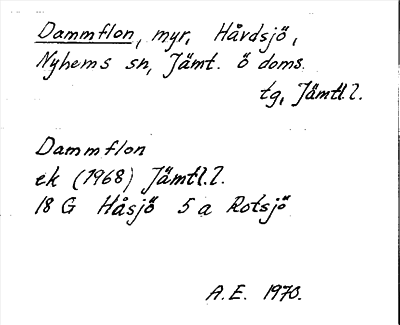 Dammflon, myr, Hårdsjö,
Nyhems sn, Jämt. ö doms.
tg, Jämtl.l.
Dammflon
ek (1968) Jämtl.l.
18 G Håsjö 5 a Rotsjö
A.E. 1970.